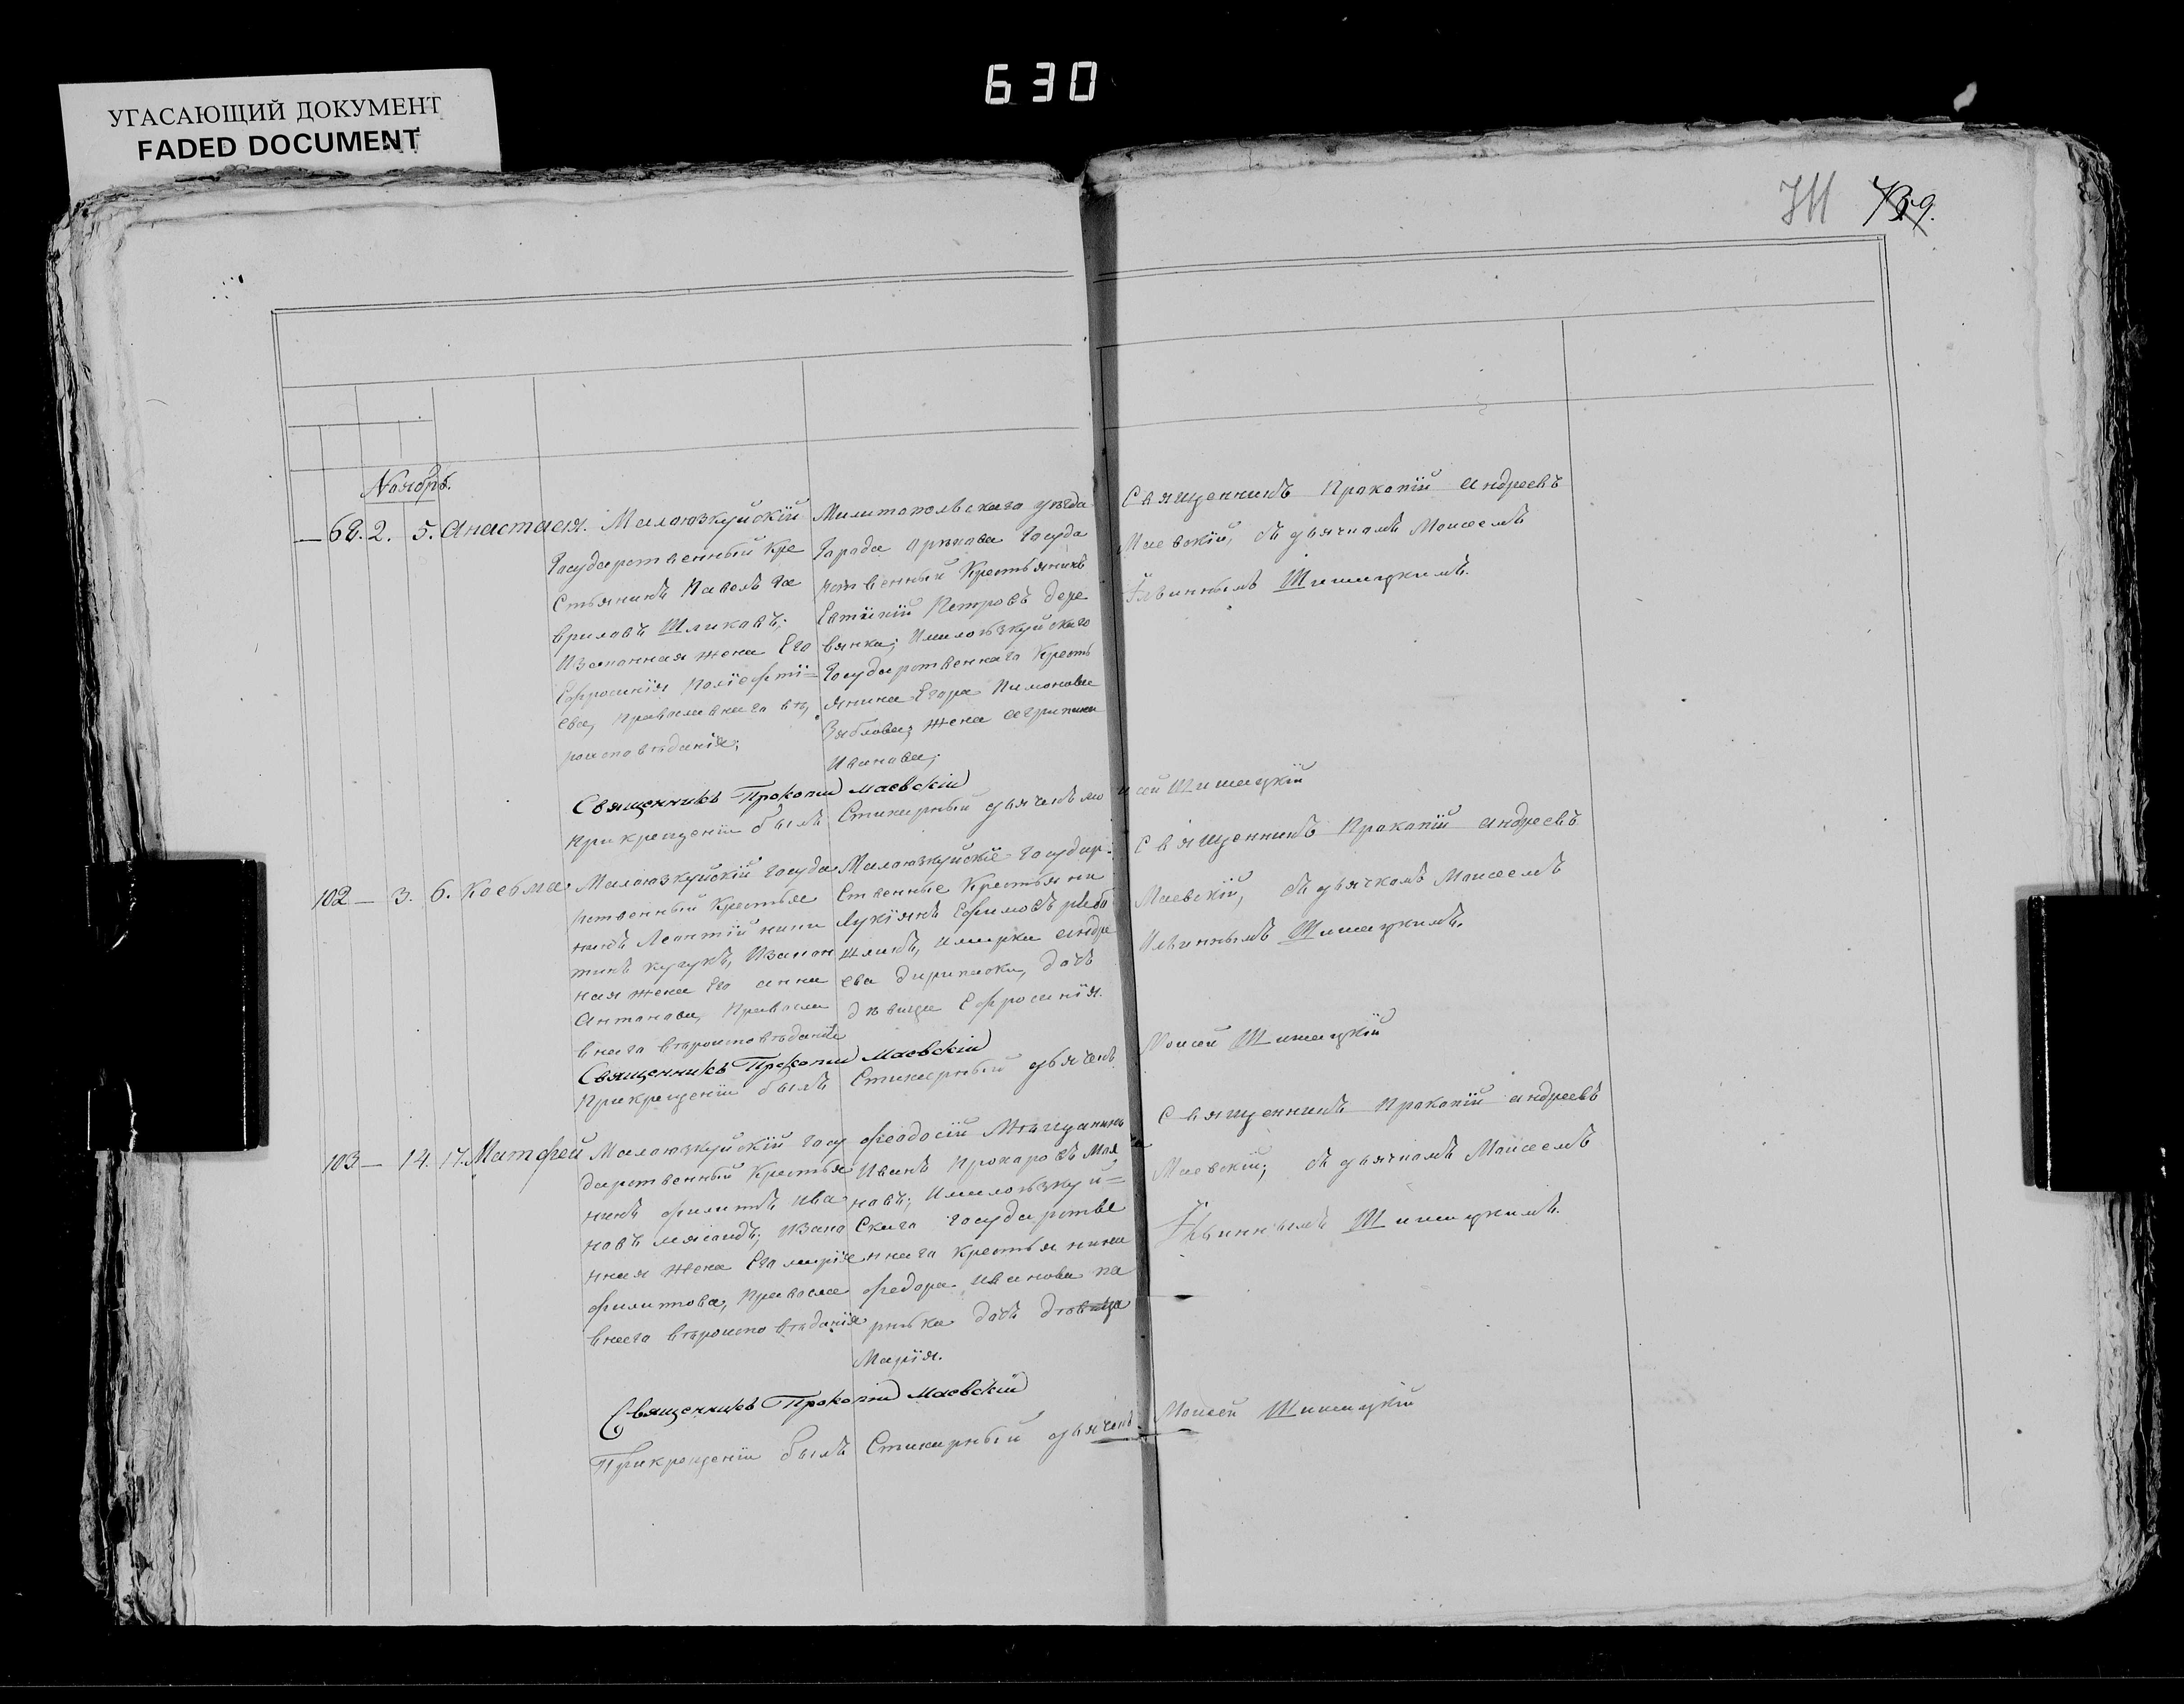 630
УГАСАЮЩИЙ ДОКУМЕНТ
FADED DOCUMENT
711 739.
Ноябрь.
— 68. 2. 5. Анастасія.
Малоюзкуйскій
Государственный Кре
стьянинъ Павелъ Га
вриловъ Шликавъ;
Изаконная жена Его
Ефросинія
ева, Православнаго вѣ
роисповѣданія;
Милитопольскаго уѣзда
Города Орѣхова Госуда
рственный Крестьянинъ
Евтихій Петровъ Дере
вянка; Ималоюзкуйскаго
Государственнаго Кресть
янина Егора Пимонова
Зяблова; жена Агрипина
Иванова;
Священникъ Пракопій Андреевъ
Маевскій, съ дьячкомъ Моисеемъ
Ільинымъ Шишацкимъ.
Священникъ Прокопій Маевскій
Прикрещеніи былъ Стихарный дьячекъ Моисей Шишацкій
102 — 3. 6. Косьма.
Малоюзкуйскій Госуда
рственный Крестья
нинъ Леонтій
Изакон
ная жена Его Анна
Антонова, Правосла
внаго вѣроисповѣданія
Малоюзкуйскіе Государ-
ственные Крестьяни
Лукіянъ Ефимовъ Рябо
шликъ, Имарка Андре
ева дочь
дѣвица Ефросинія.
Священникъ Пракопій Андреевъ
Маевскій, съ дьячкомъ Моисеемъ
Ильинымъ Шишацкимъ.
Священникъ Прокопій Маевскій
Прикрещеніи былъ Стихарный дьячекъ Моисей Шишацкій
103 — 14. 17. Матфей
Малоюзкуйскій Госу
дарственный Крестья
нинъ Филиппъ Ива
новъ Изако
нная жена Его Марія
Филиппова, Правосла
внаго вѣроисповѣданія
Феодосій Мѣщанинъ
Иванъ Прохаровъ
новъ; Ималоюзкуй=
скаго Государстве
ннаго Крестьянина
Федора Иванова Па
рыбка дочь дѣвица
Марія.
Священникъ Пракопій Андреевъ
Маевскій; съ дьячкомъ Моисеемъ
Ільинымъ Шишацкимъ.
Священникъ Прокопій Маевскій
Прикрещеніи былъ Стихарный дьячекъ Моисей Шишацкій